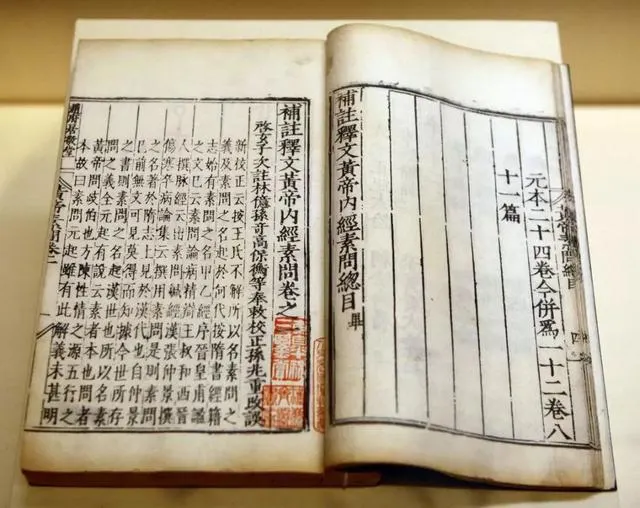 元本二十四卷今併爲一十二卷八
十一篇
補註釋文黃帝內經素問總目 畢
補註釋文黃帝內經素問卷之
啓玄子次註林億孫奇高保衡等奉敕校正孫兆重改誤
新校正云按王氏不解所以名素問之
義及素問之名起於何代按隋書經籍
志始有素問之名甲乙經序晉皇甫謐
之文已云素問論病精辨王叔和西晉
人撰脉經云出素問鍼經漢張仲景撰
傷寒卒病論集云撰用素問是則素問
之名著於隋志上見於漢代也自仲景
已前無文可見莫得而知據今世所存
之書則素問之名起漢世也所以名素
問之義全元起有說云素者本也問者
黃帝問岐伯也方陳性情之源五行之
本故曰素問元起雖有此解義未甚明